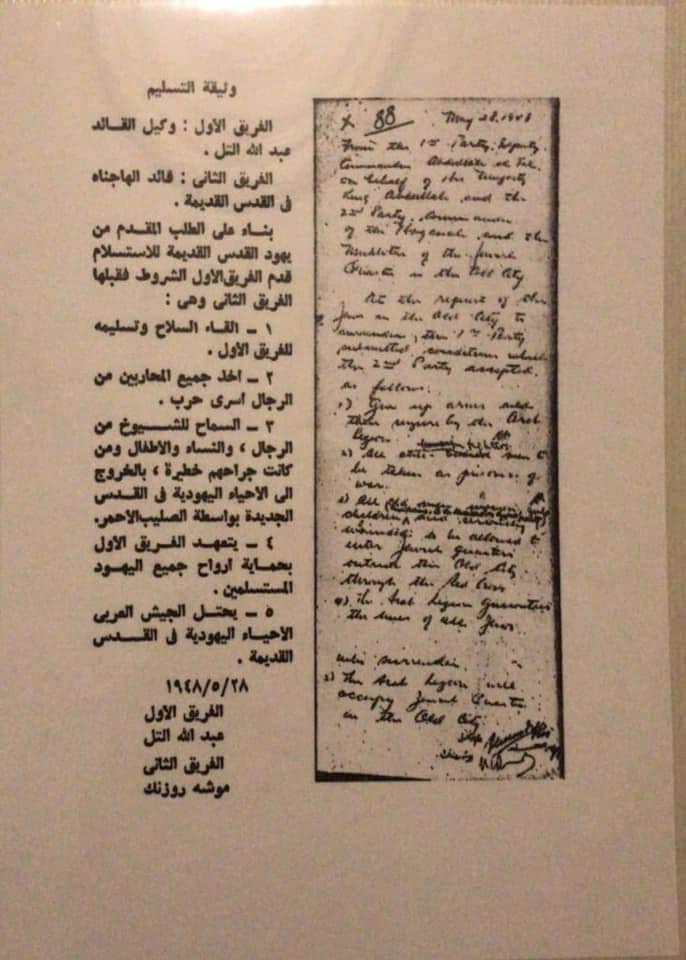 وثيقة التسليم
الفريق الأول : وكيل القائد
عبد الله التل .
الفريق الثانى : قائد الهاجناه
فى القدس القديمة .
بناء على الطلب المقدم من
يهود القدس القديمة للاستسلام
قدم الفريق الأول الشروط فقبلها
الفريق الثانى وهى :
١ ــ القاء السلاح وتسليمه
للفريق الأول .
٢ ــ اخذ جميع المحاربين من
الرجال اسرى حرب .
٣ ــ السماح للشيوخ من
الرجال ، والنساء والاطفال ومن
كانت جراحهم خطيرة ، بالخروج
الى الاحياء اليهودية فى القدس
الجديدة بواسطة الصليب الاحمر.
٤ ــ يتعهد الفريق الأول
بحماية ارواح جميع اليهود
المستسلمين .
٥ ــ يحتل الجيش العربى
الاحياء اليهودية فى القدس
القديمة .
١٩٤٨/٥/٢٨
الفريق الأول
عبد الله التل
الفريق الثانى
موشه روزنك
x 88 May 28. 1948
From the 1st Party: Deputy
Commander Abdullah el Tel
on behalf of His Majesty
King Abdullah and the
2nd Party, Commander
of the Haganah and the
Mukhtar of the Jewish
Quarter in the Old City
At the request of the
Jews in the Old City to
surrender, the 1st Party
submitted conditions which
the 2nd Party accepted.
as follows:
1) Give up arms and
their seizure by the Arab
Legion.
2) All men to
be taken as prisoners of
war.
3) All
children, and
wounded: to be allowed to
enter Jewish quarters
outside the Old City
through the Red Cross
4) The Arab Legion guarantees
the lives of all Jews
who surrender.
5) The Arab Legion will
occupy Jewish Quarter
in the Old City.